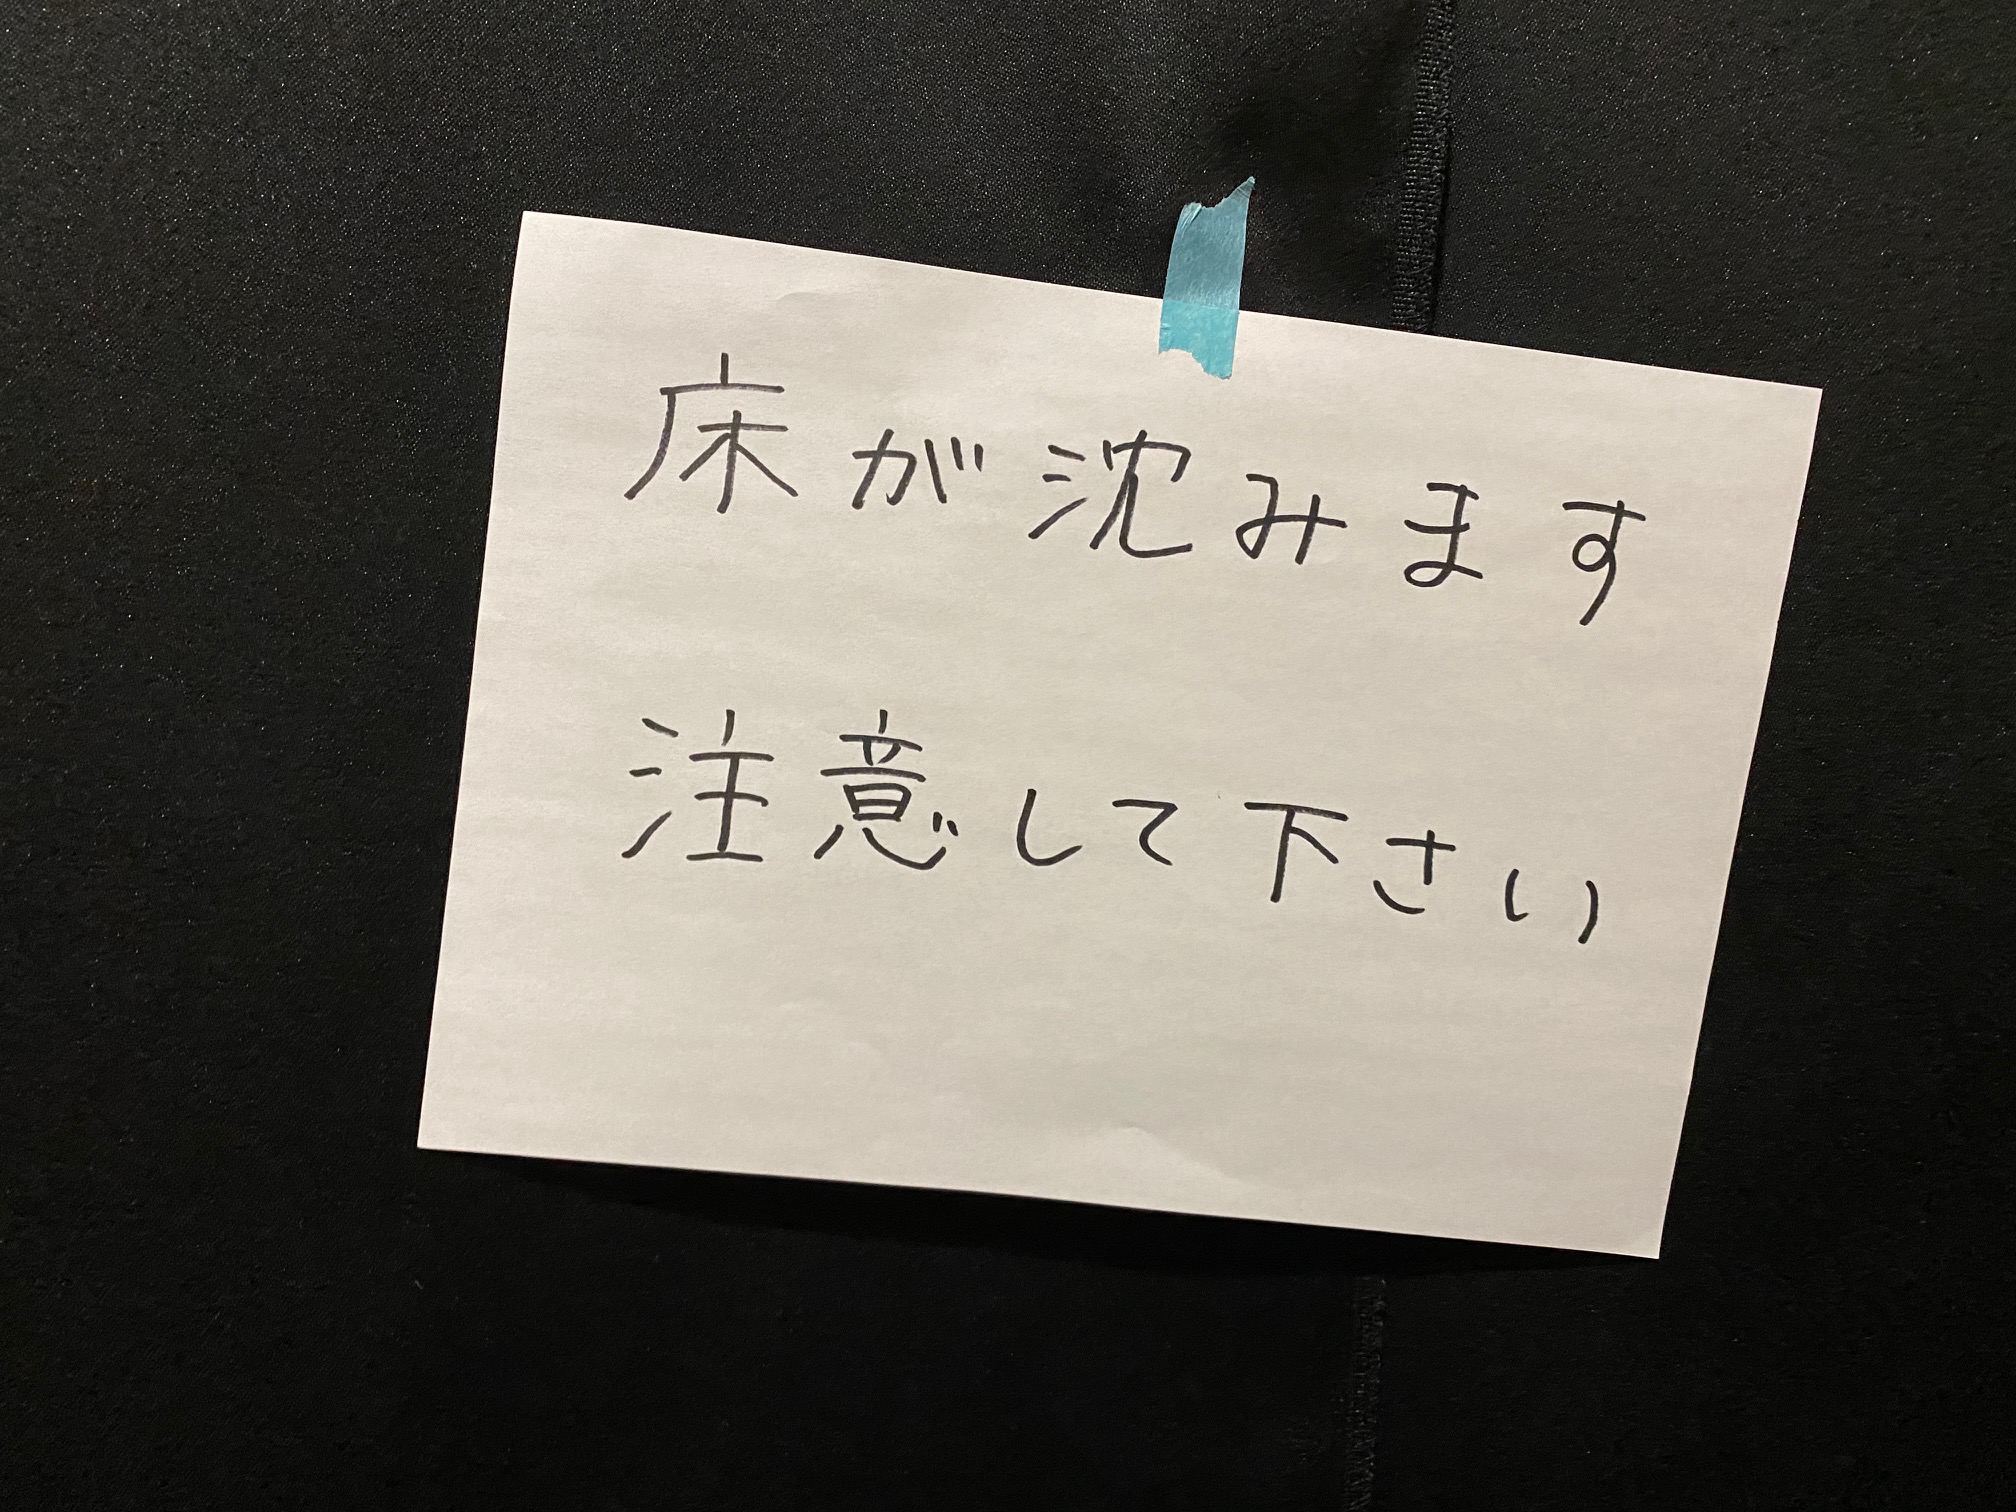 床が沈みます
注意して下さい